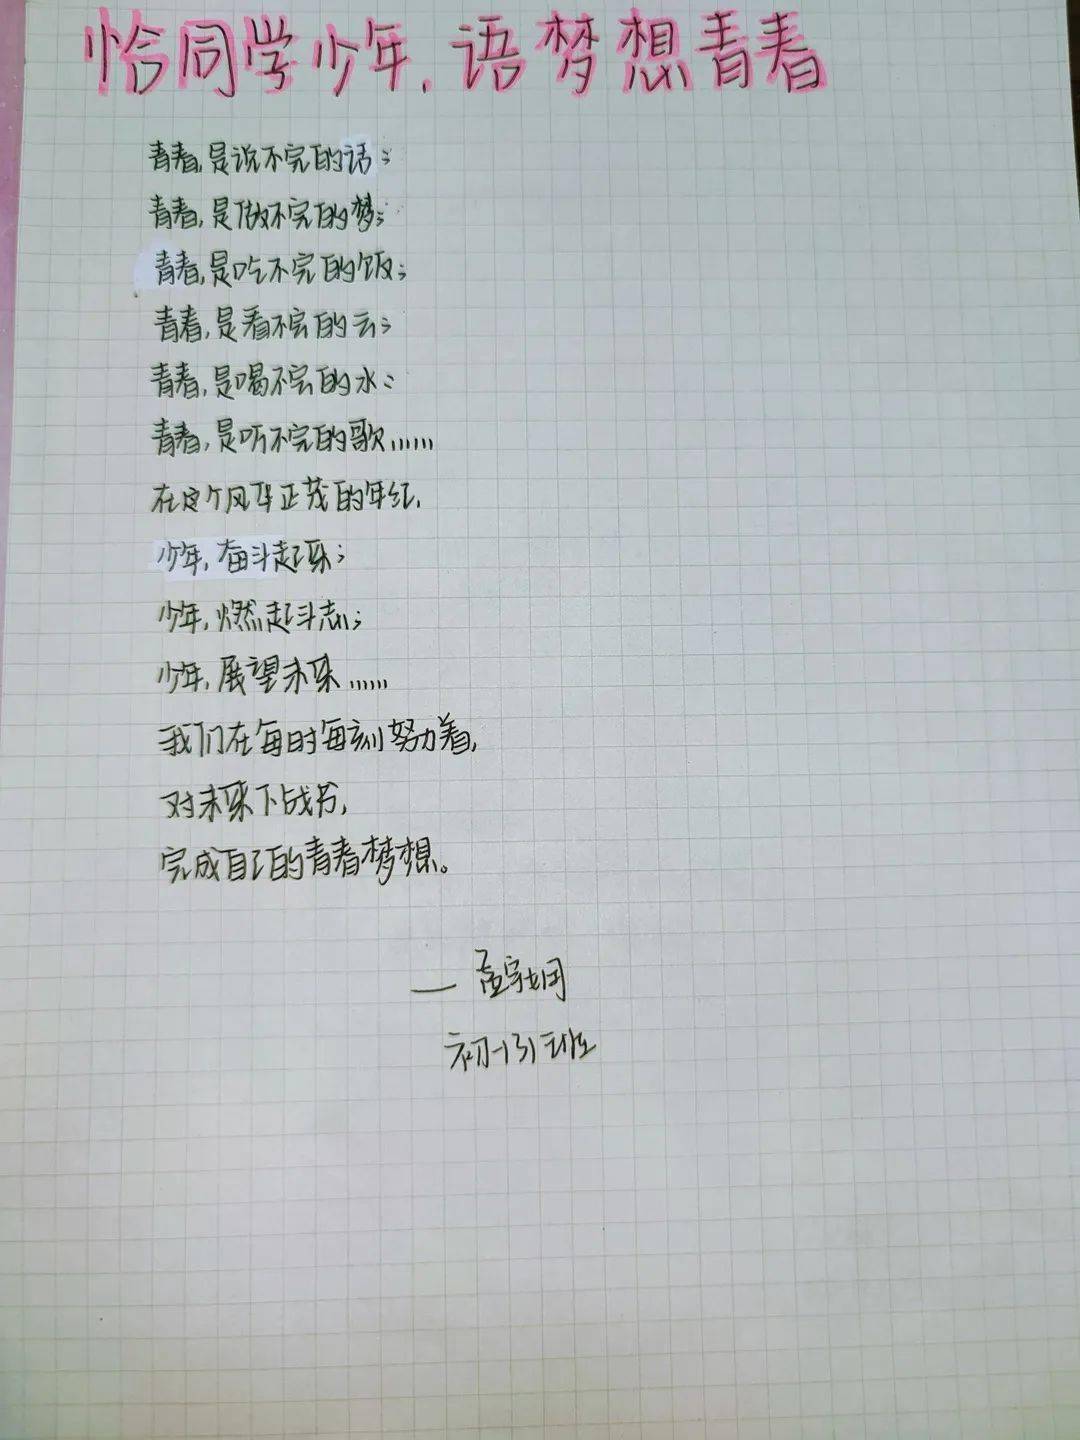 恰同学少年，语梦想青春
青春，是说不完的话；
青春，是做不完的梦；
青春，是吃不完的饭；
青春，是看不完的云；
青春，是喝不完的水；
青春，是听不完的歌……
在这个风华正茂的年纪，
少年，奋斗起来；
少年，燃起斗志；
少年，展望未来……
我们在每时每刻努力着，
对未来下战书，
完成自己的青春梦想。
— 孟宗娴
初一31班